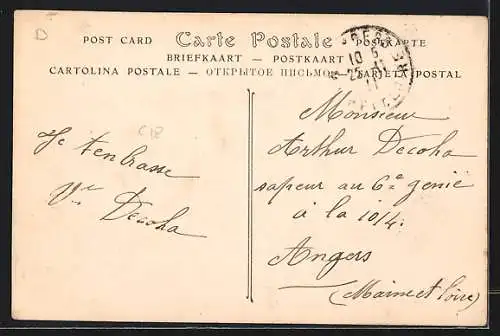 D
POST CARD Carte Postale POSTKARTE
BRIEFKAART — POSTKAART
CARTOLINA POSTALE — ОТКРЫТОЕ ПИСЬМО — TARJETA POSTAL
10 6
25 11
11
C12
Je t'embrasse
Vve Decoha
Monsieur
Arthur Decoha
sapeur au 6e génie
à la 10/4.
Angers
(Maine et Loire)